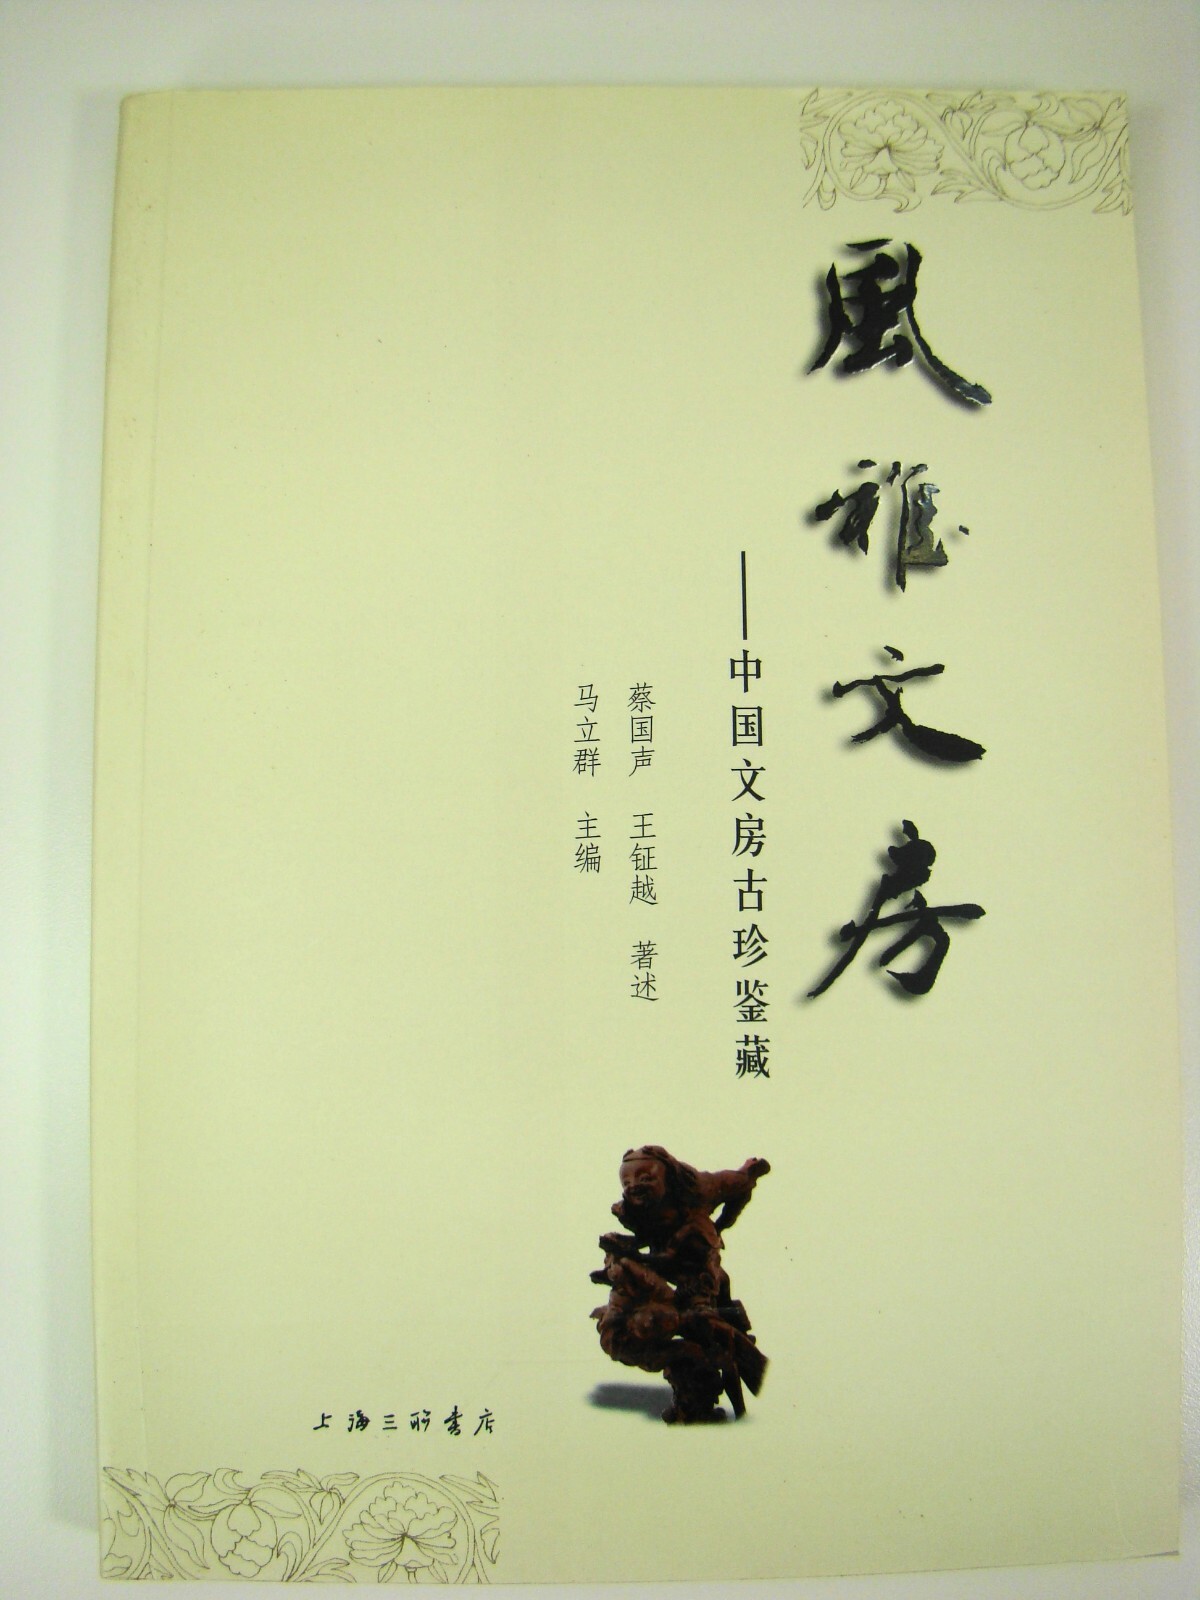 風雅文房
——中国文房古珍鉴藏
蔡国声 王钲越 著述
马立群 主编
上海三联书店